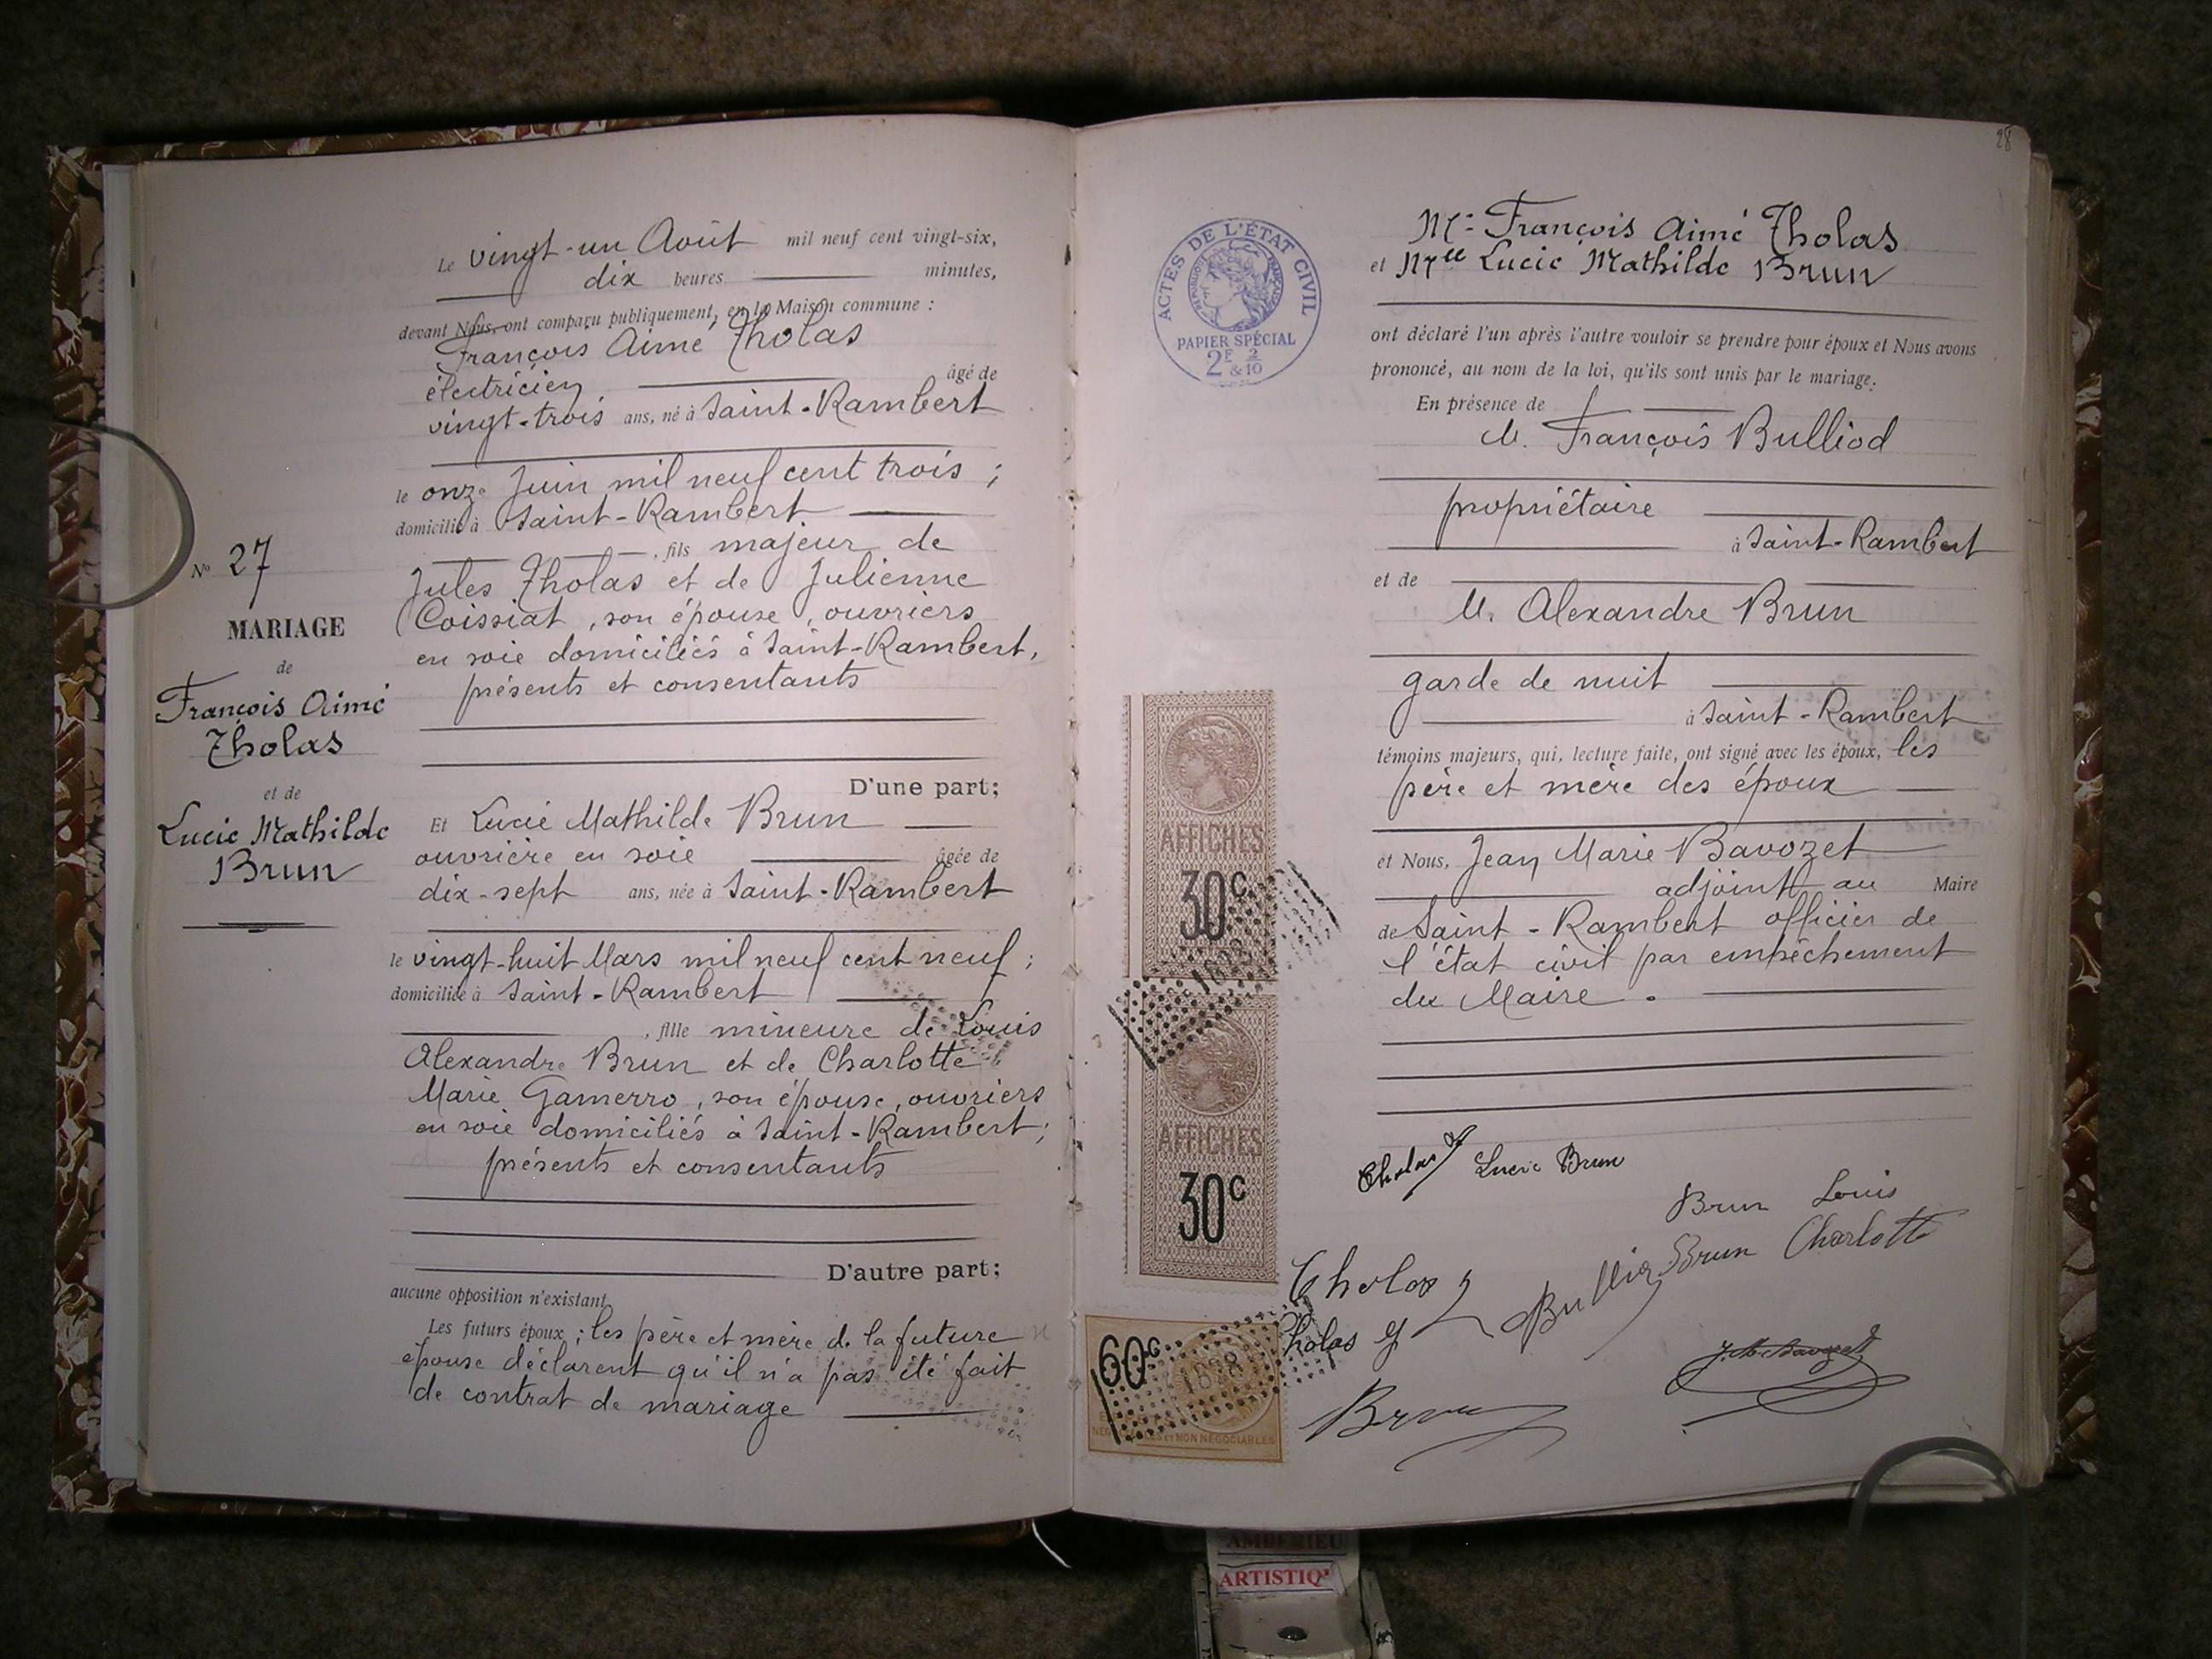 N° 27
MARIAGE
de
François Aimé
Tholas
et de
Lucie Mathilde
Brun
Le vingt-un Août mil neuf cent vingt-six,
dix heures minutes,
devant Nous, ont comparu publiquement, en la Maison commune :
François Aimé Tholas
électricien âgé de
vingt-trois ans, né à Saint-Rambert
le onze Juin mil neuf cent trois ;
domicilié à Saint-Rambert
, fils majeur de
Jules Tholas et de Julienne
Coissiat, son épouse, ouvriers
en soie domiciliés à Saint-Rambert,
présents et consentants
D'une part;
Et Lucie Mathilde Brun
ouvrière en soie âgée de
dix-sept ans, née à Saint-Rambert
le vingt-huit Mars mil neuf cent neuf ;
domiciliée à Saint-Rambert
, fille mineure de Louis
Alexandre Brun et de Charlotte
Marie Gamerro, son épouse, ouvriers
en soie domiciliés à Saint-Rambert;
présents et consentants
D'autre part;
aucune opposition n'existant
Les futurs époux ; les père et mère de la future
épouse déclarent qu'il n'a pas été fait
de contrat de mariage
28
ACTES DE L'ÉTAT CIVIL
RÉPUBLIQUE FRANÇAISE
PAPIER SPÉCIAL
2F & 2/10
Mr François Aimé Tholas
et Melle Lucie Mathilde Brun
ont déclaré l'un après l'autre vouloir se prendre pour époux et Nous avons
prononcé, au nom de la loi, qu'ils sont unis par le mariage.
En présence de
M. François Bulliod
propriétaire
à Saint-Rambert
et de
M. Alexandre Brun
garde de nuit
à Saint-Rambert
témoins majeurs, qui, lecture faite, ont signé avec les époux, les
père et mère des époux
et Nous, Jean Marie Bavozet
adjoint au Maire
de Saint-Rambert officier de
l'état civil par empêchement
du Maire.
AFFICHES
30c
AFFICHES
30c
60c
1628
ET NON NÉGOCIABLES
Tholas f
Lucie Brun
Brun Louis
Brun Charlotte
Tholas
Bulliod
Tholas
Brun
J. M. Bavozet
AMBERIEU
ARTISTIQ